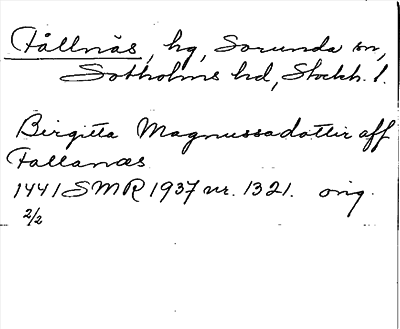 Fållnäs, hg, Sorunda sn,
Sotholms hd, Stockh. l.
Birgitta Magnussadottir aff
Fallanæs
1441 SMR 1937 nr. 1321. orig.
2/2